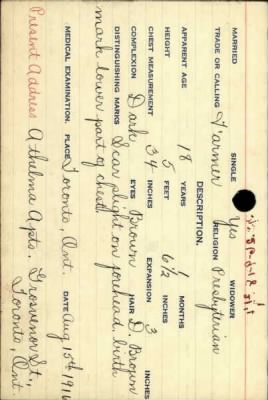 MARRIED SINGLE Yes WIDOWER
TRADE OR CALLING Farmer RELIGION Presbyterian
DESCRIPTION.
APPARENT AGE 18 YEARS MONTHS
HEIGHT 5 FEET 6½ INCHES
CHEST MEASUREMENT 34 INCHES EXPANSION 3 INCHES
COMPLEXION Dark EYES Brown HAIR D. Brown
DISTINGUISHING MARKS Scar slight on forehead. birth
mark lower part of chest
MEDICAL EXAMINATION. PLACE Toronto, Ont. DATE Aug 15th 1916
Present Address Athelma Apts. Grosvenor St.,
Toronto, Ont.